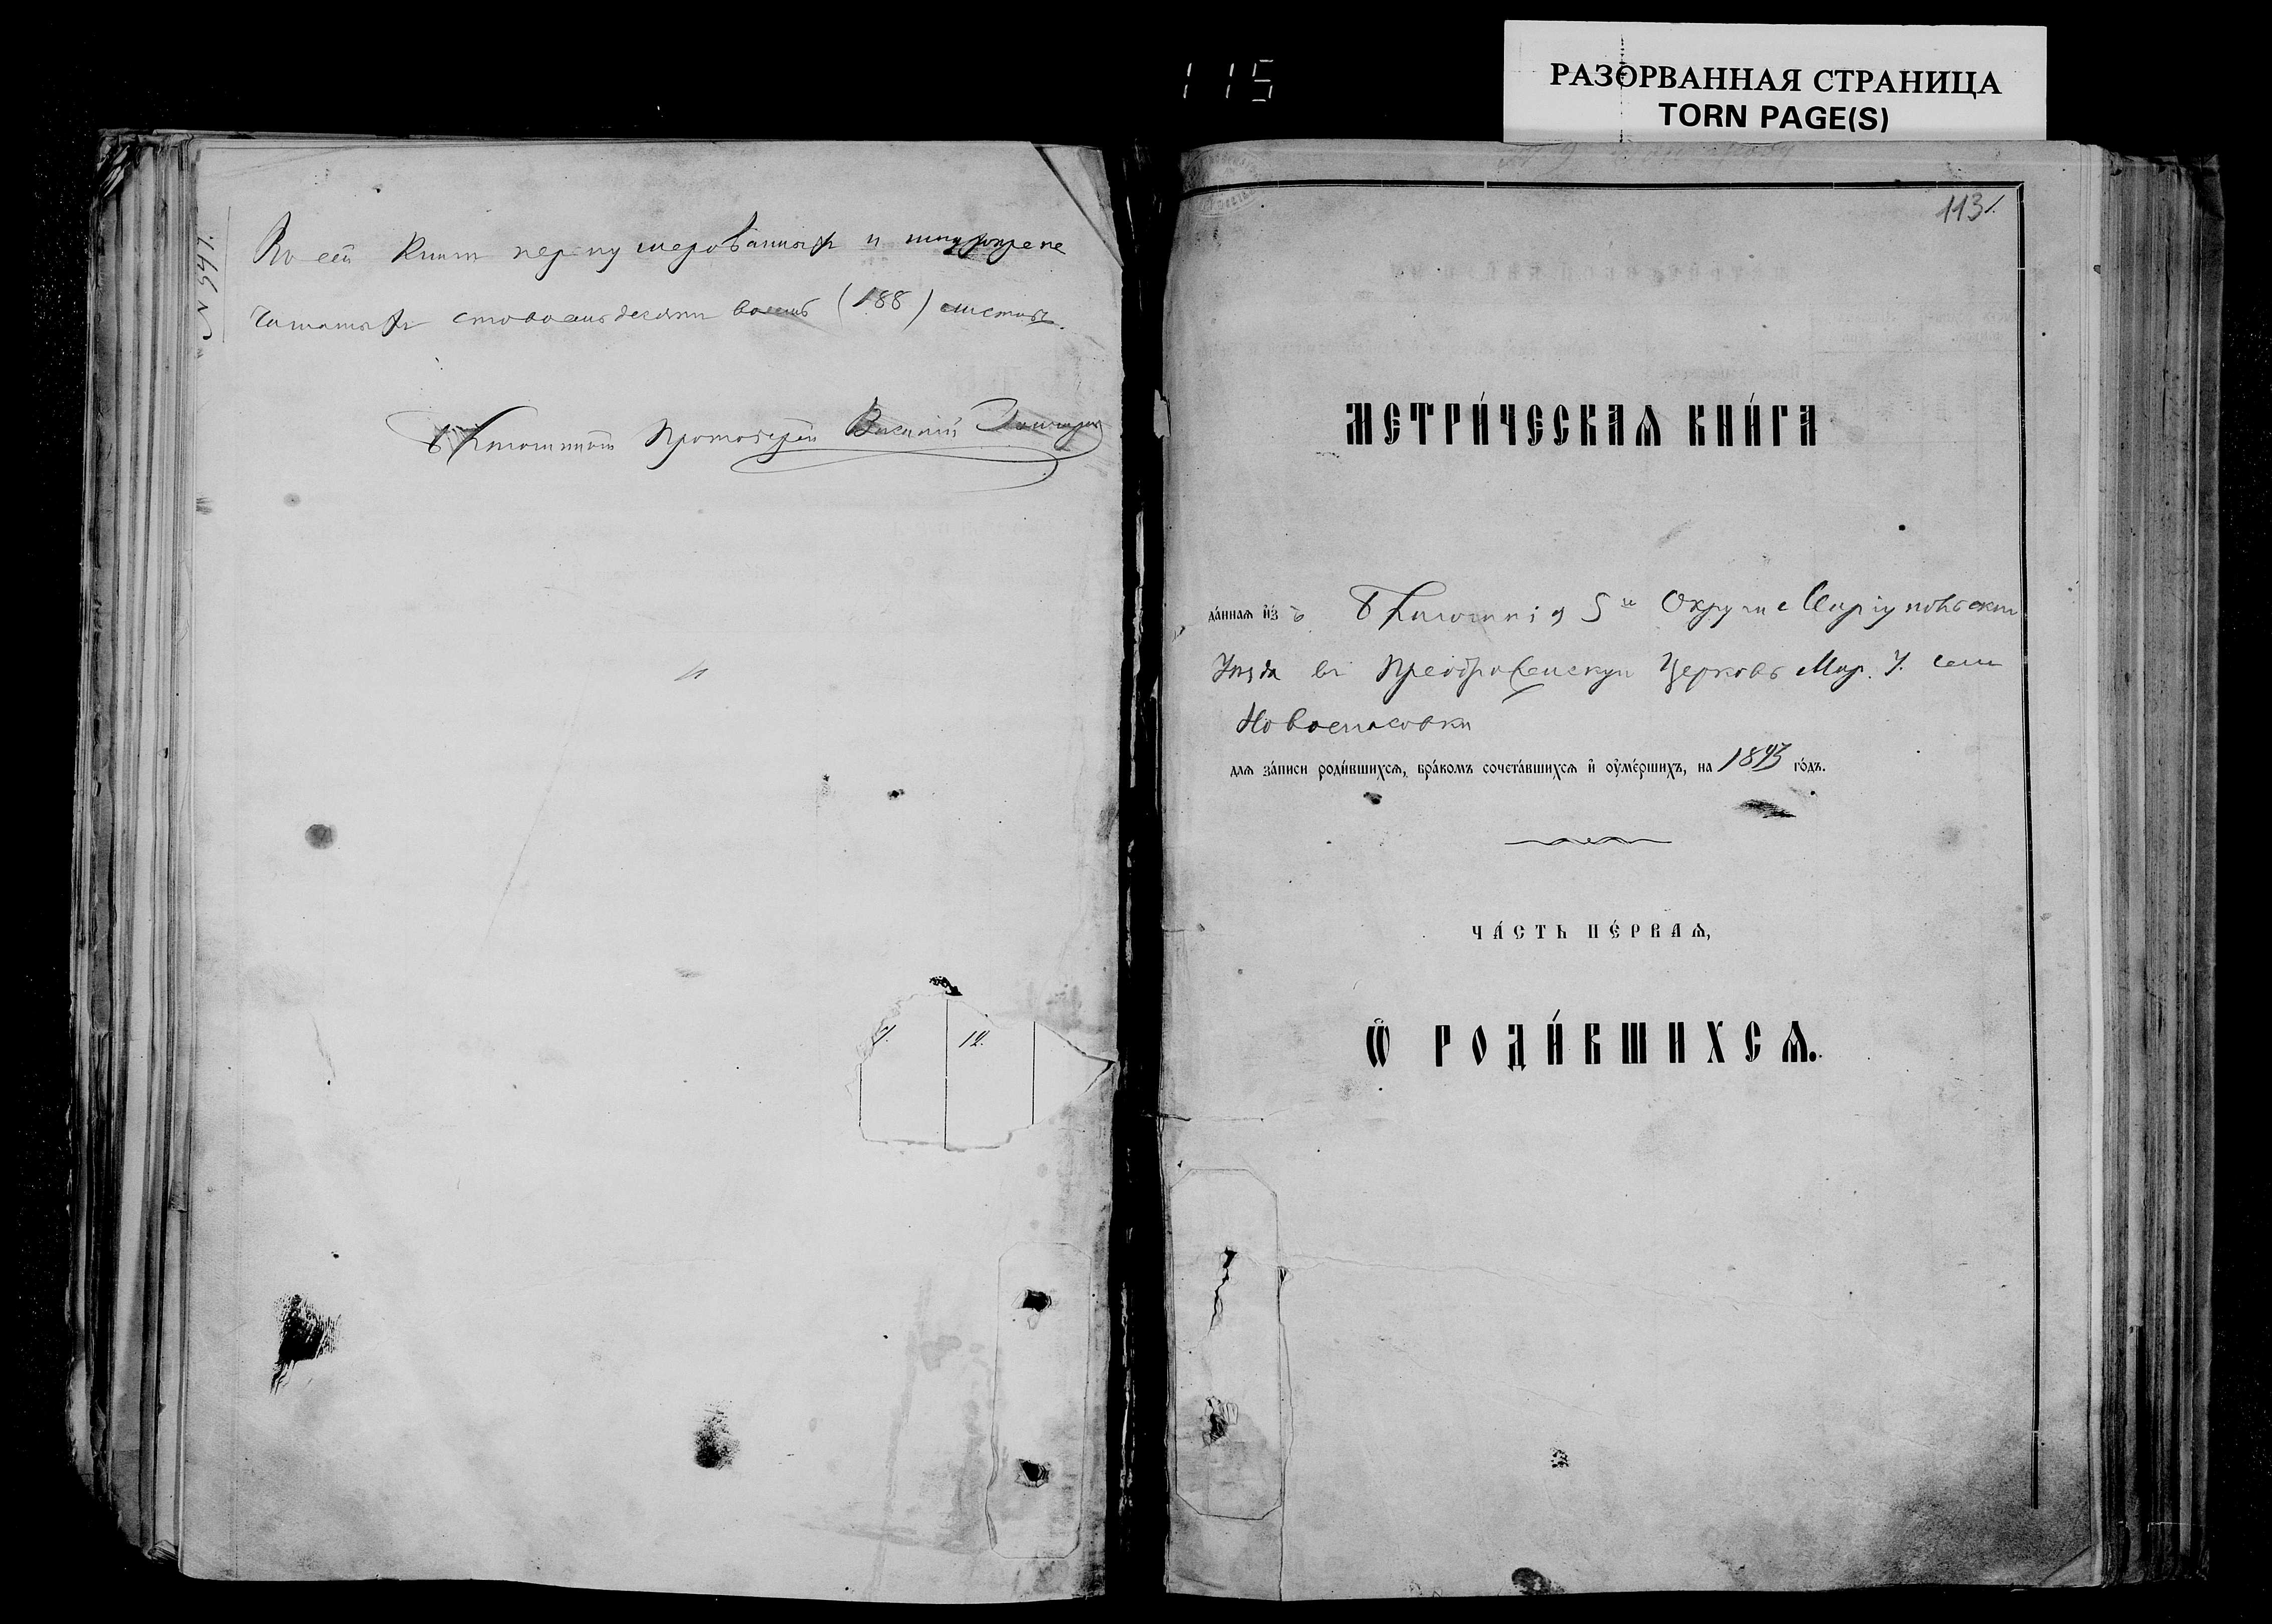 115
РАЗОРВАННАЯ СТРАНИЦА
TORN PAGE(S)
Въ сей книгѣ перенумерованныхъ и шнуропе
чатанныхъ сто восемьдесятъ восемь (188) листовъ.
Благочинный Протоіерей Василій
9. 12.
113.
МЕТРИ́ЧЕСКАѦ КНИ́ГА
да́ннаѧ и҆з̾ Благочинія 5го Округа
Уѣзда въ Преображенскую Церковь Мар. У. села
Новоспасовки
длѧ за́писи роди́вшихсѧ, бра́комъ сочета́вшихсѧ и҆ оу҆ме́ршихъ, на 1893 го́дъ.
ЧА́СТЬ ПЕ́РВАѦ,
Ѡ҆ РОДИ́ВШИХСѦ.